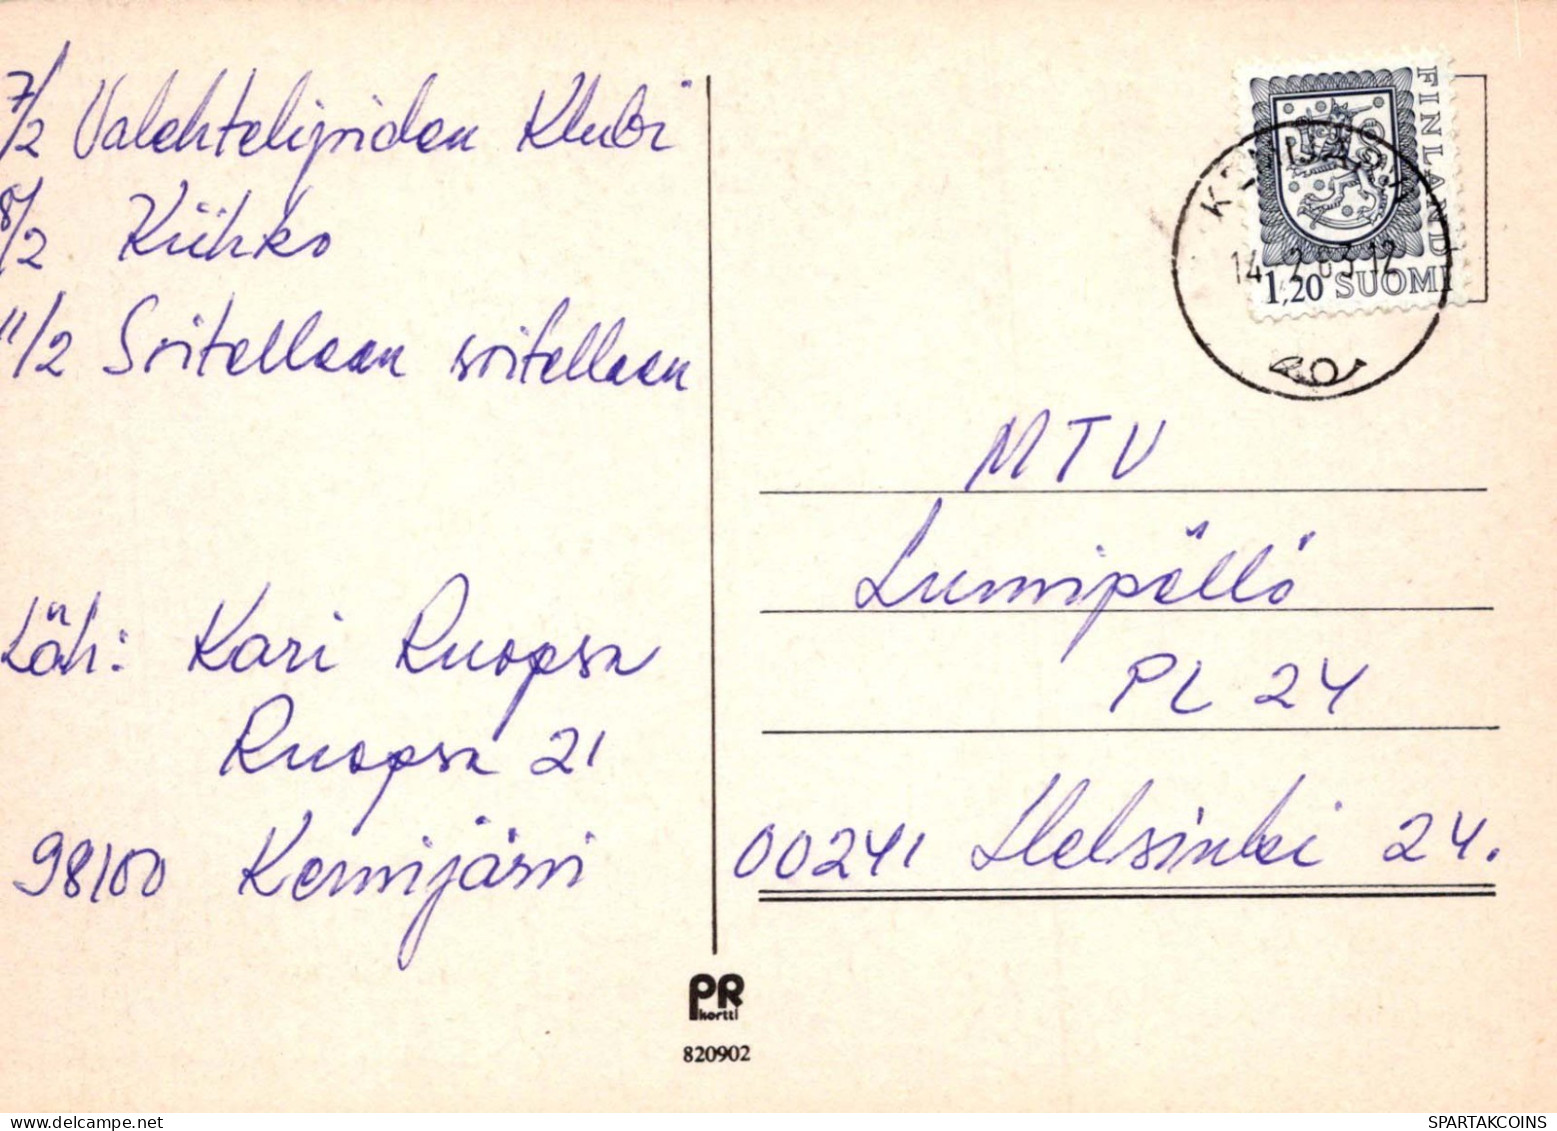 7/2 Valehtelijoiden Klubi
8/2 Kiihko
11/2 Soitellaan soitellaan
Läh: Kari Ruopsa
Ruopsa 21
98100 Kemijärvi
FINLAND
KEMIJÄRVI
14.2.83.12
1,20 SUOMI
MTV
Lumipällö
PL 24
00241 Helsinki 24.
PR
kortti
820902
SPARTAKCOINS.COM